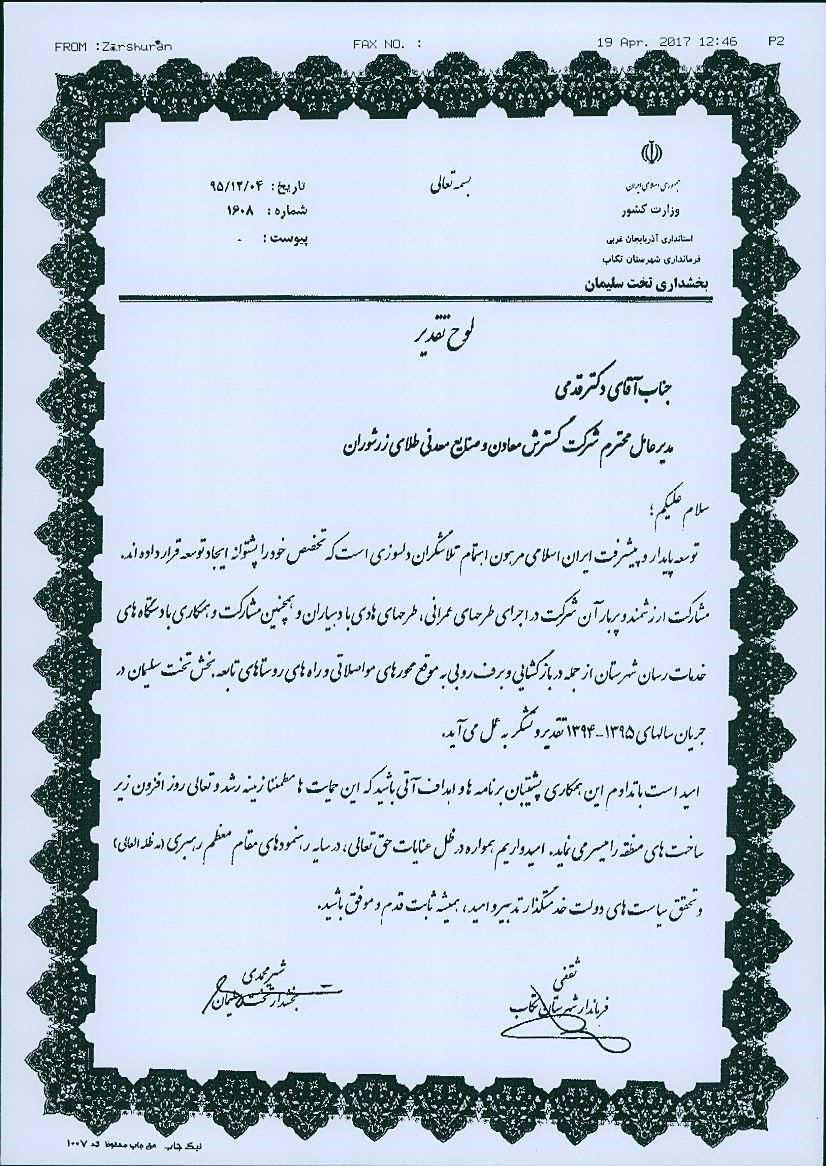 FROM :Zarshuran FAX NO. : 19 Apr. 2017 12:46 P2
جمهوری اسلامی ایران
وزارت کشور
استانداری آذربایجان غربی
فرمانداری شهرستان تکاب
بخشداری تخت سلیمان
بسمه تعالی
تاریخ: ۹۵/۱۲/۰۴
شماره: ۱۶۰۸
پیوست: -
لوح تقدیر
جناب آقای دکتر قدمی
مدیرعامل محترم شرکت گسترش معادن و صنایع معدنی طلای زرشوران
سلام علیکم؛
توسعه پایدار و پیشرفت ایران اسلامی مرهون اهتمام تلاشگران دلسوزی است که تخصص خود را پشتوانه ایجاد توسعه قرار داده اند.
مشارکت ارزشمند و پربار آن شرکت در اجرای طرحهای عمرانی، طرحهای هادی با دبیاران و همچنین مشارکت و همکاری با دستگاه های
خدمات رسان شهرستان از جمله در بازگشایی و برف روبی به موقع محورهای مواصلاتی و راه های روستاهای تابعه بخش تخت سلیمان در
جریان سالهای ۱۳۹۵-۱۳۹۴ تقدیر و تشکر به عمل می آید.
امید است با تداوم این همکاری پشتیبان برنامه ها و اهداف آتی باشید که این حمایت ها مطمئنا زمینه رشد و تعالی روز افزون زیر
ساخت های منطقه را میسر می نماید. امیدواریم همواره در ظل عنایات حق تعالی، در سایه رهنمودهای مقام معظم رهبری (مد ظله العالی)
و تحقق سیاست های دولت خدمتگذار تدبیر و امید، همیشه ثابت قدم و موفق باشید.
ثقفی
فرماندار شهرستان تکاب
شیرمحمدی
بخشدار تخت سلیمان
نیک چاپ حق چاپ محفوظ کد ۱۰۰۷